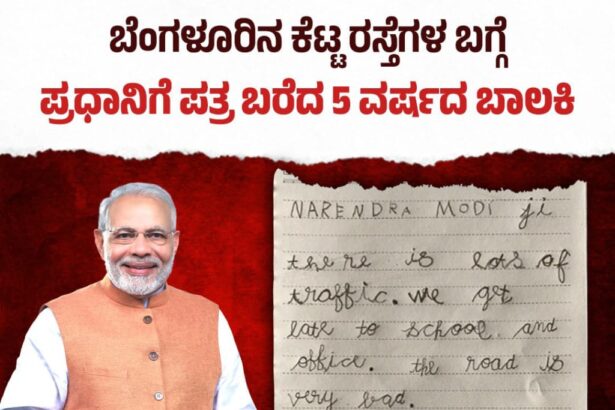 ಬೆಂಗಳೂರಿನ ಕೆಟ್ಟ ರಸ್ತೆಗಳ ಬಗ್ಗೆ
ಪ್ರಧಾನಿಗೆ ಪತ್ರ ಬರೆದ 5 ವರ್ಷದ ಬಾಲಕಿ
NARENDRA MODI ji
there is lots of
traffic. we get
late to school and
office. the road is
very bad.